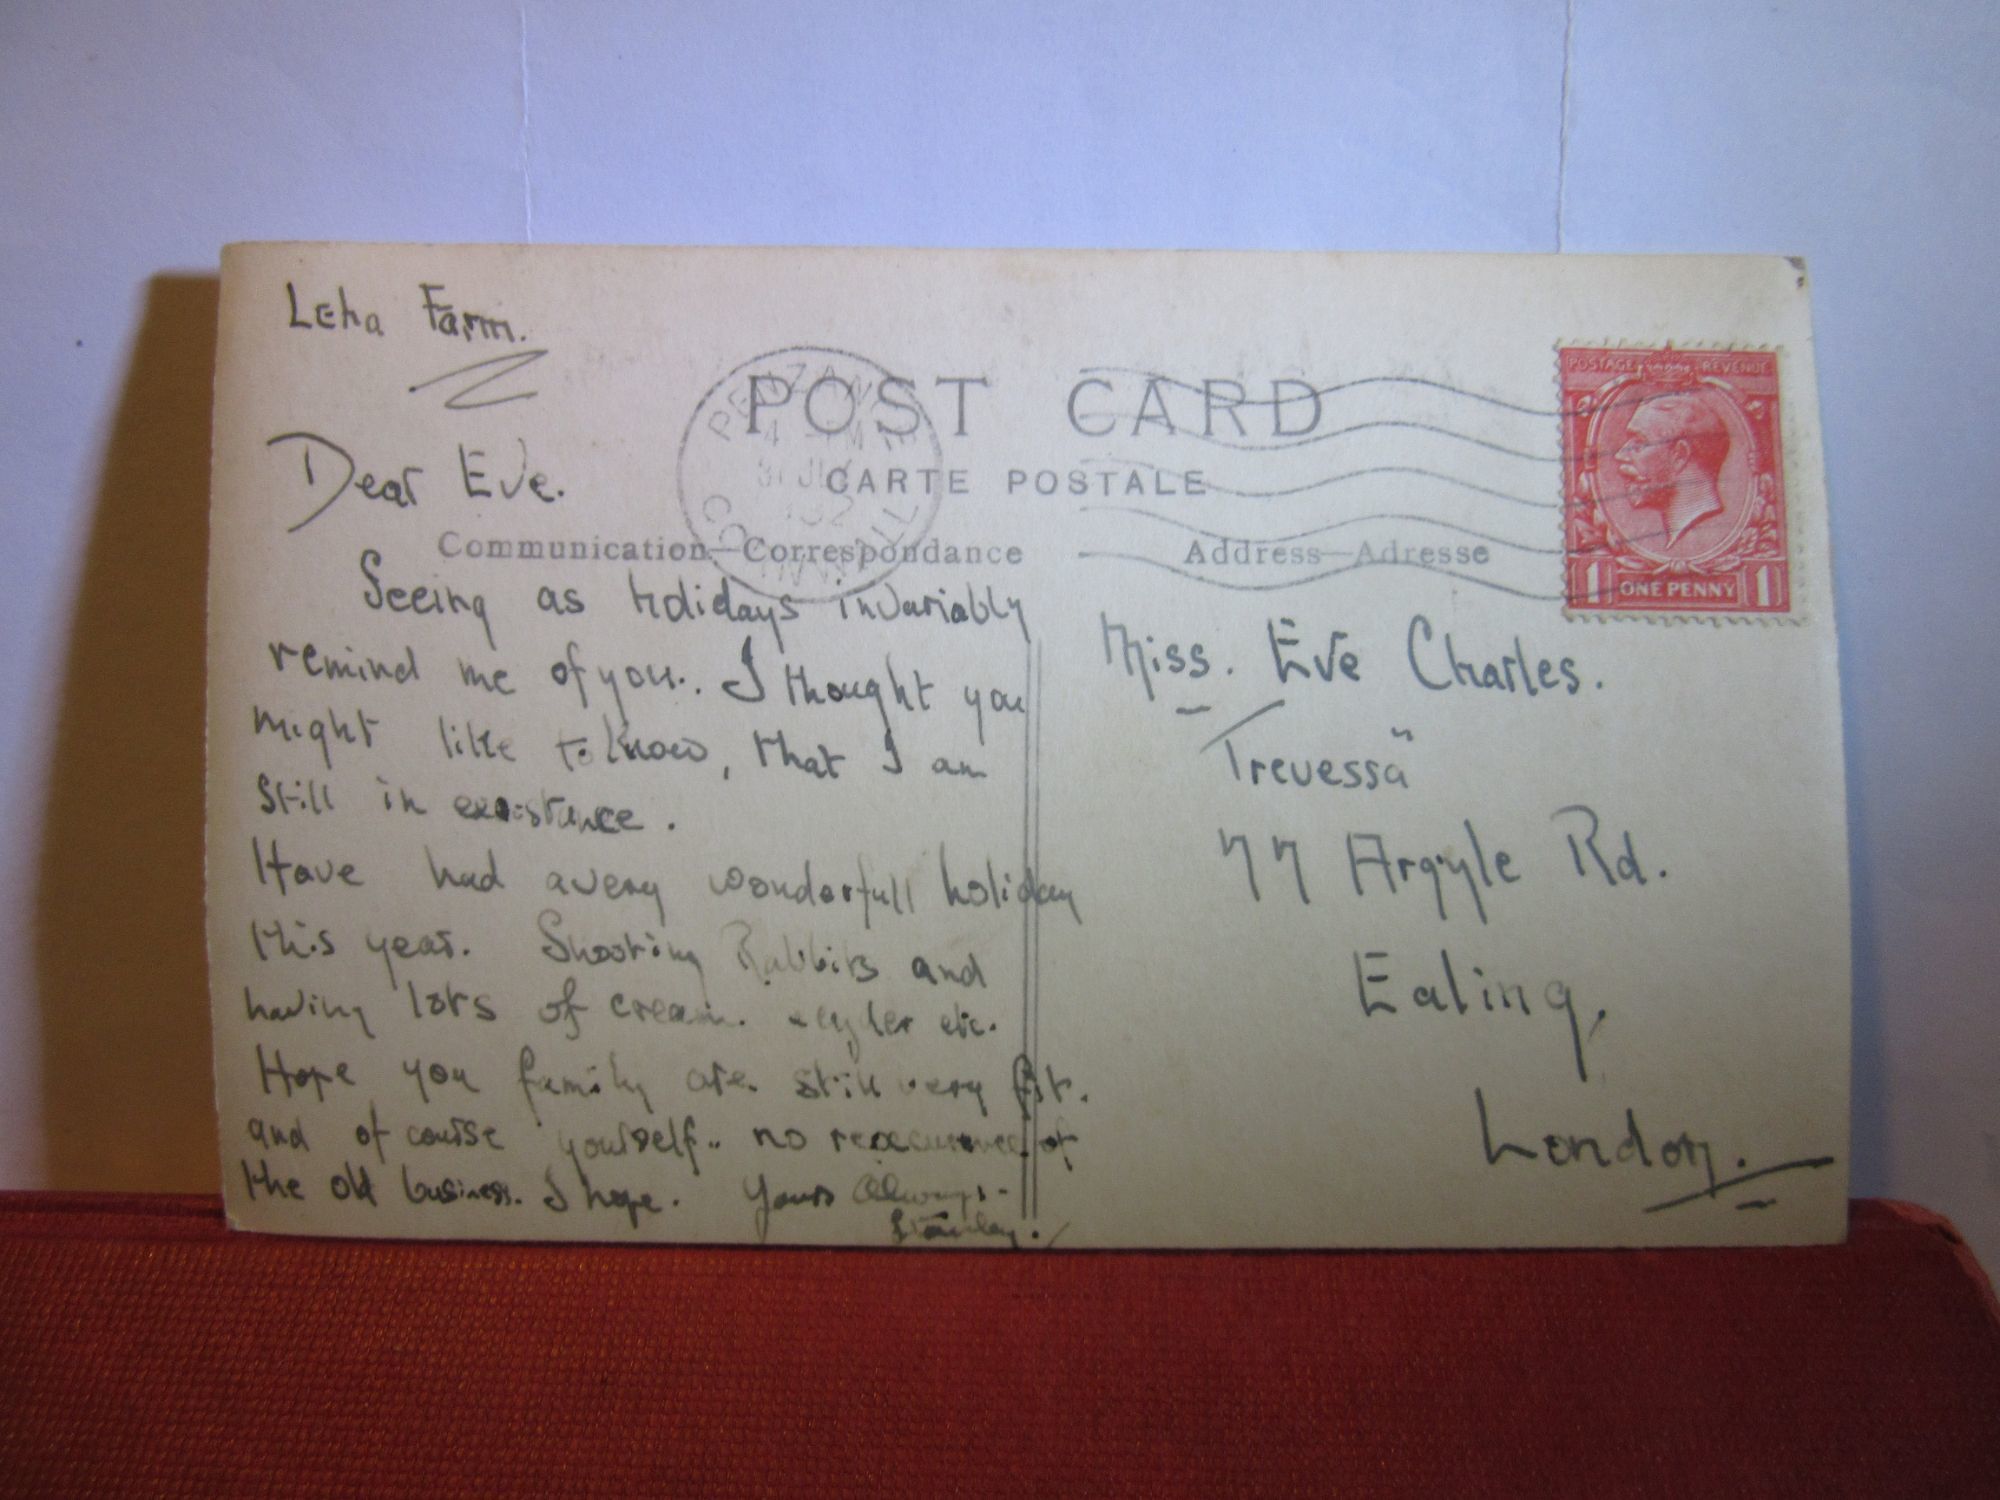 Leha Farm.
POST CARD
CARTE POSTALE
PENZANCE
CORNWALL
POSTAGE REVENUE
1 ONE PENNY 1
Communication—Correspondance
Address—Adresse
Dear Eve.
Seeing as holidays invariably
remind me of you.. I thought you
might like to know, that I am
still in existance.
Have had a very wonderfull holiday
this year. Shooting Rabbits and
having lots of cream. cyder etc.
Hope you family are still very fit.
and of course yourself.. no of
the old business. I hope. Yours Always.
Stanley.
Miss. Eve Charles.
Trevessa"
77 Argyle Rd.
Ealing,
London.